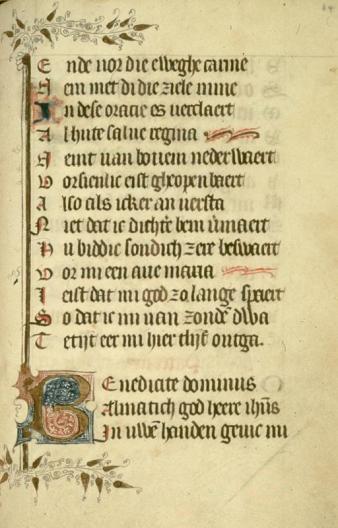 E nde uor die eweghe tanne
N em met di die ziele mine
I n dese oratie es uerclaert
A l hute salue regina
N eint uan bouem nederwaert
V orsienlic eist gheopenbaert
A lso als icker an uersta
N iet dat ic dichte bem vmaert
N u biddic sondich zere beswaert
V or mi een aue maria
I eist dat mi god zo lange spaert
S o dat ic mi uan zonde dwa
T etijt eer mi hier tlijf ontga.
B Enedicate dominus
Almatich god heere ihus
In uwe handen geuic mi